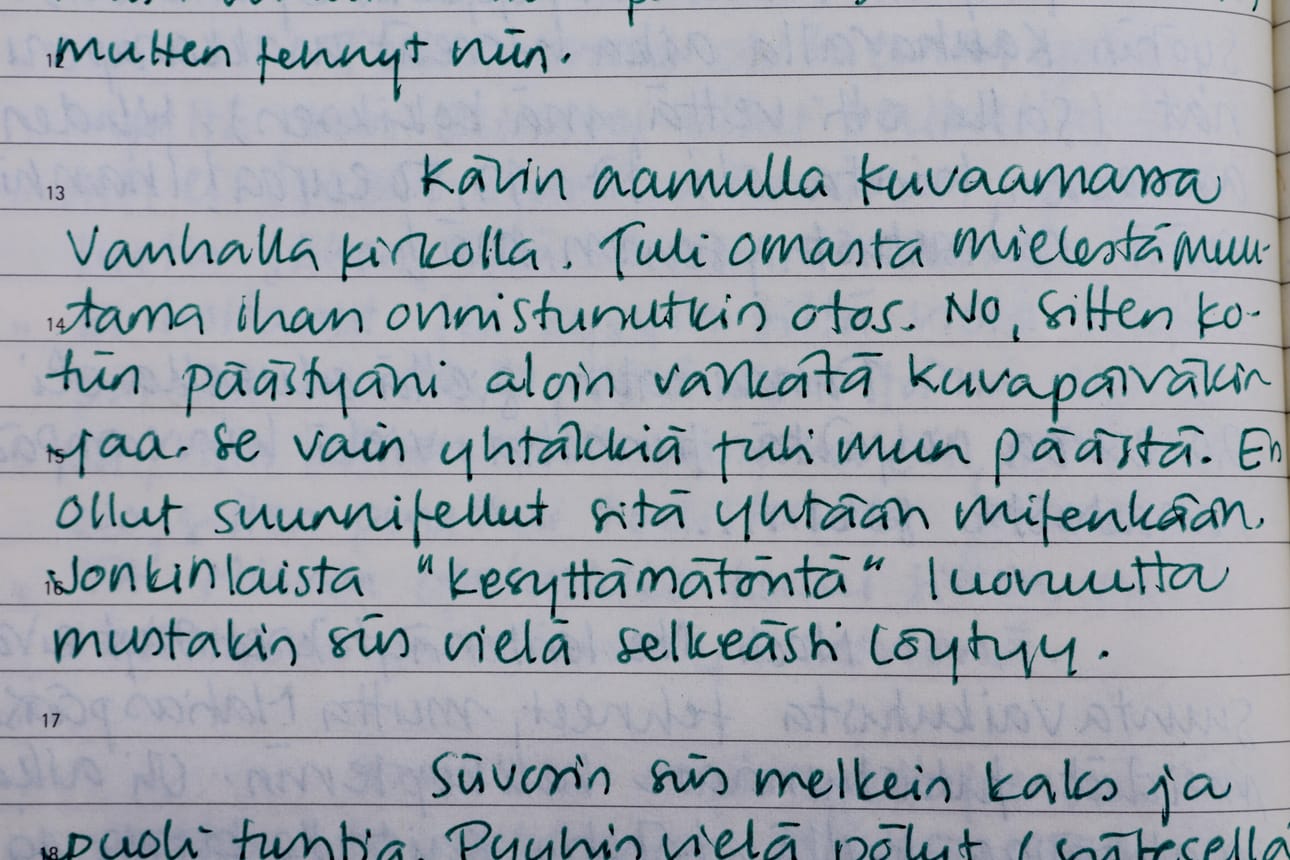 12 mutten tehnyt niin.
13 Kävin aamulla kuvaamassa
Vanhalla kirkolla. Tuli omasta mielestä muu-
14 tama ihan onnistunutkin otos. No, sitten ko-
tiin päästyäni aloin vankätä kuvapäiväkir-
15 jaa. Se vain yhtäkkiä tuli mun päästä. En
ollut suunnitellut sitä yhtään mitenkään.
16 Jonkinlaista "kesyttämätöntä" luovuutta
mustakin siis vielä selkeästi löytyy.
17
Siivosin siis melkein kaks ja
18 puoli tuntia. Pyyhin vielä pölyt